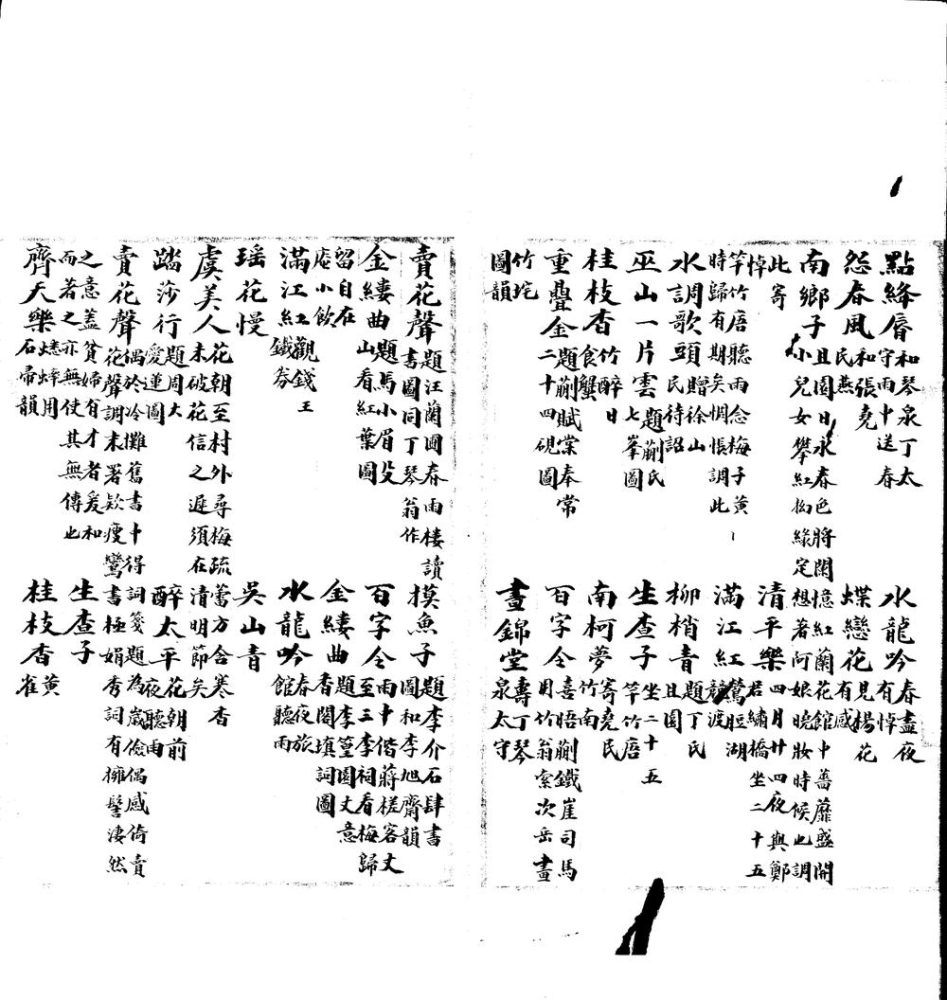 點絳唇 和琴泉丁太守雨中送春
水龍吟 春盡夜有悼
怨春風 和張堯民燕
蝶戀花 見楊花有感
南鄉子 且園日永春色將闌小兒女攀紅拗綠定憶紅蘭花館中薔薇盛開想著阿娘曉妝時候也調此寄悼
清平樂 四月廿四夜與鄭君繡橋坐二十五竿竹唐聽雨念梅子黃時歸有期矣惆悵調此
滿江紅 鶯脰湖競渡
水調歌頭 贈徐山民待詔
柳梢青 題丁氏且園
巫山一片雲 題蒯氏七峯圖
生查子 坐二十五竿竹唐
桂枝香 竹醉日食蟹
南柯夢 寄堯民竹南
重疊金 題蒯賦棠奉常二十四硯圖
百字令 喜晤蒯鐵崖司馬用竹翁索次岳畫竹垞圖韻
晝錦堂 壽丁琴泉太守
賣花聲 題汪蘭圃春雨樓讀書圖同丁琴翁作
摸魚子 題李介石肆書圖和李旭齋韻
金縷曲 題馬小眉山看紅葉圖
百字令 雨十偕蔣槎客丈至三李祠看梅歸留自在庵小飲
金縷曲 題李篁園丈意香閣填詞圖
滿江紅 觀錢王鐵券
水龍吟 春夜旅館聽雨
瑤花慢
吳山青
虞美人 花朝至村外尋梅疏未破花信之遲須在清明節矣
踏莎行 題周大愛蓮圖
醉太平 花朝前夜聽雨
賣花聲 偶於冷攤舊書中得詞箋題為歲儉偶感倚賣花聲調末署款瘦鸞書極娟秀詞有擁髻淒然之意蓋貧婦有才者爰和而著之亦無使其無傳也
生查子
齊天樂 蟋蟀用石帚韻
桂枝香 黃雀